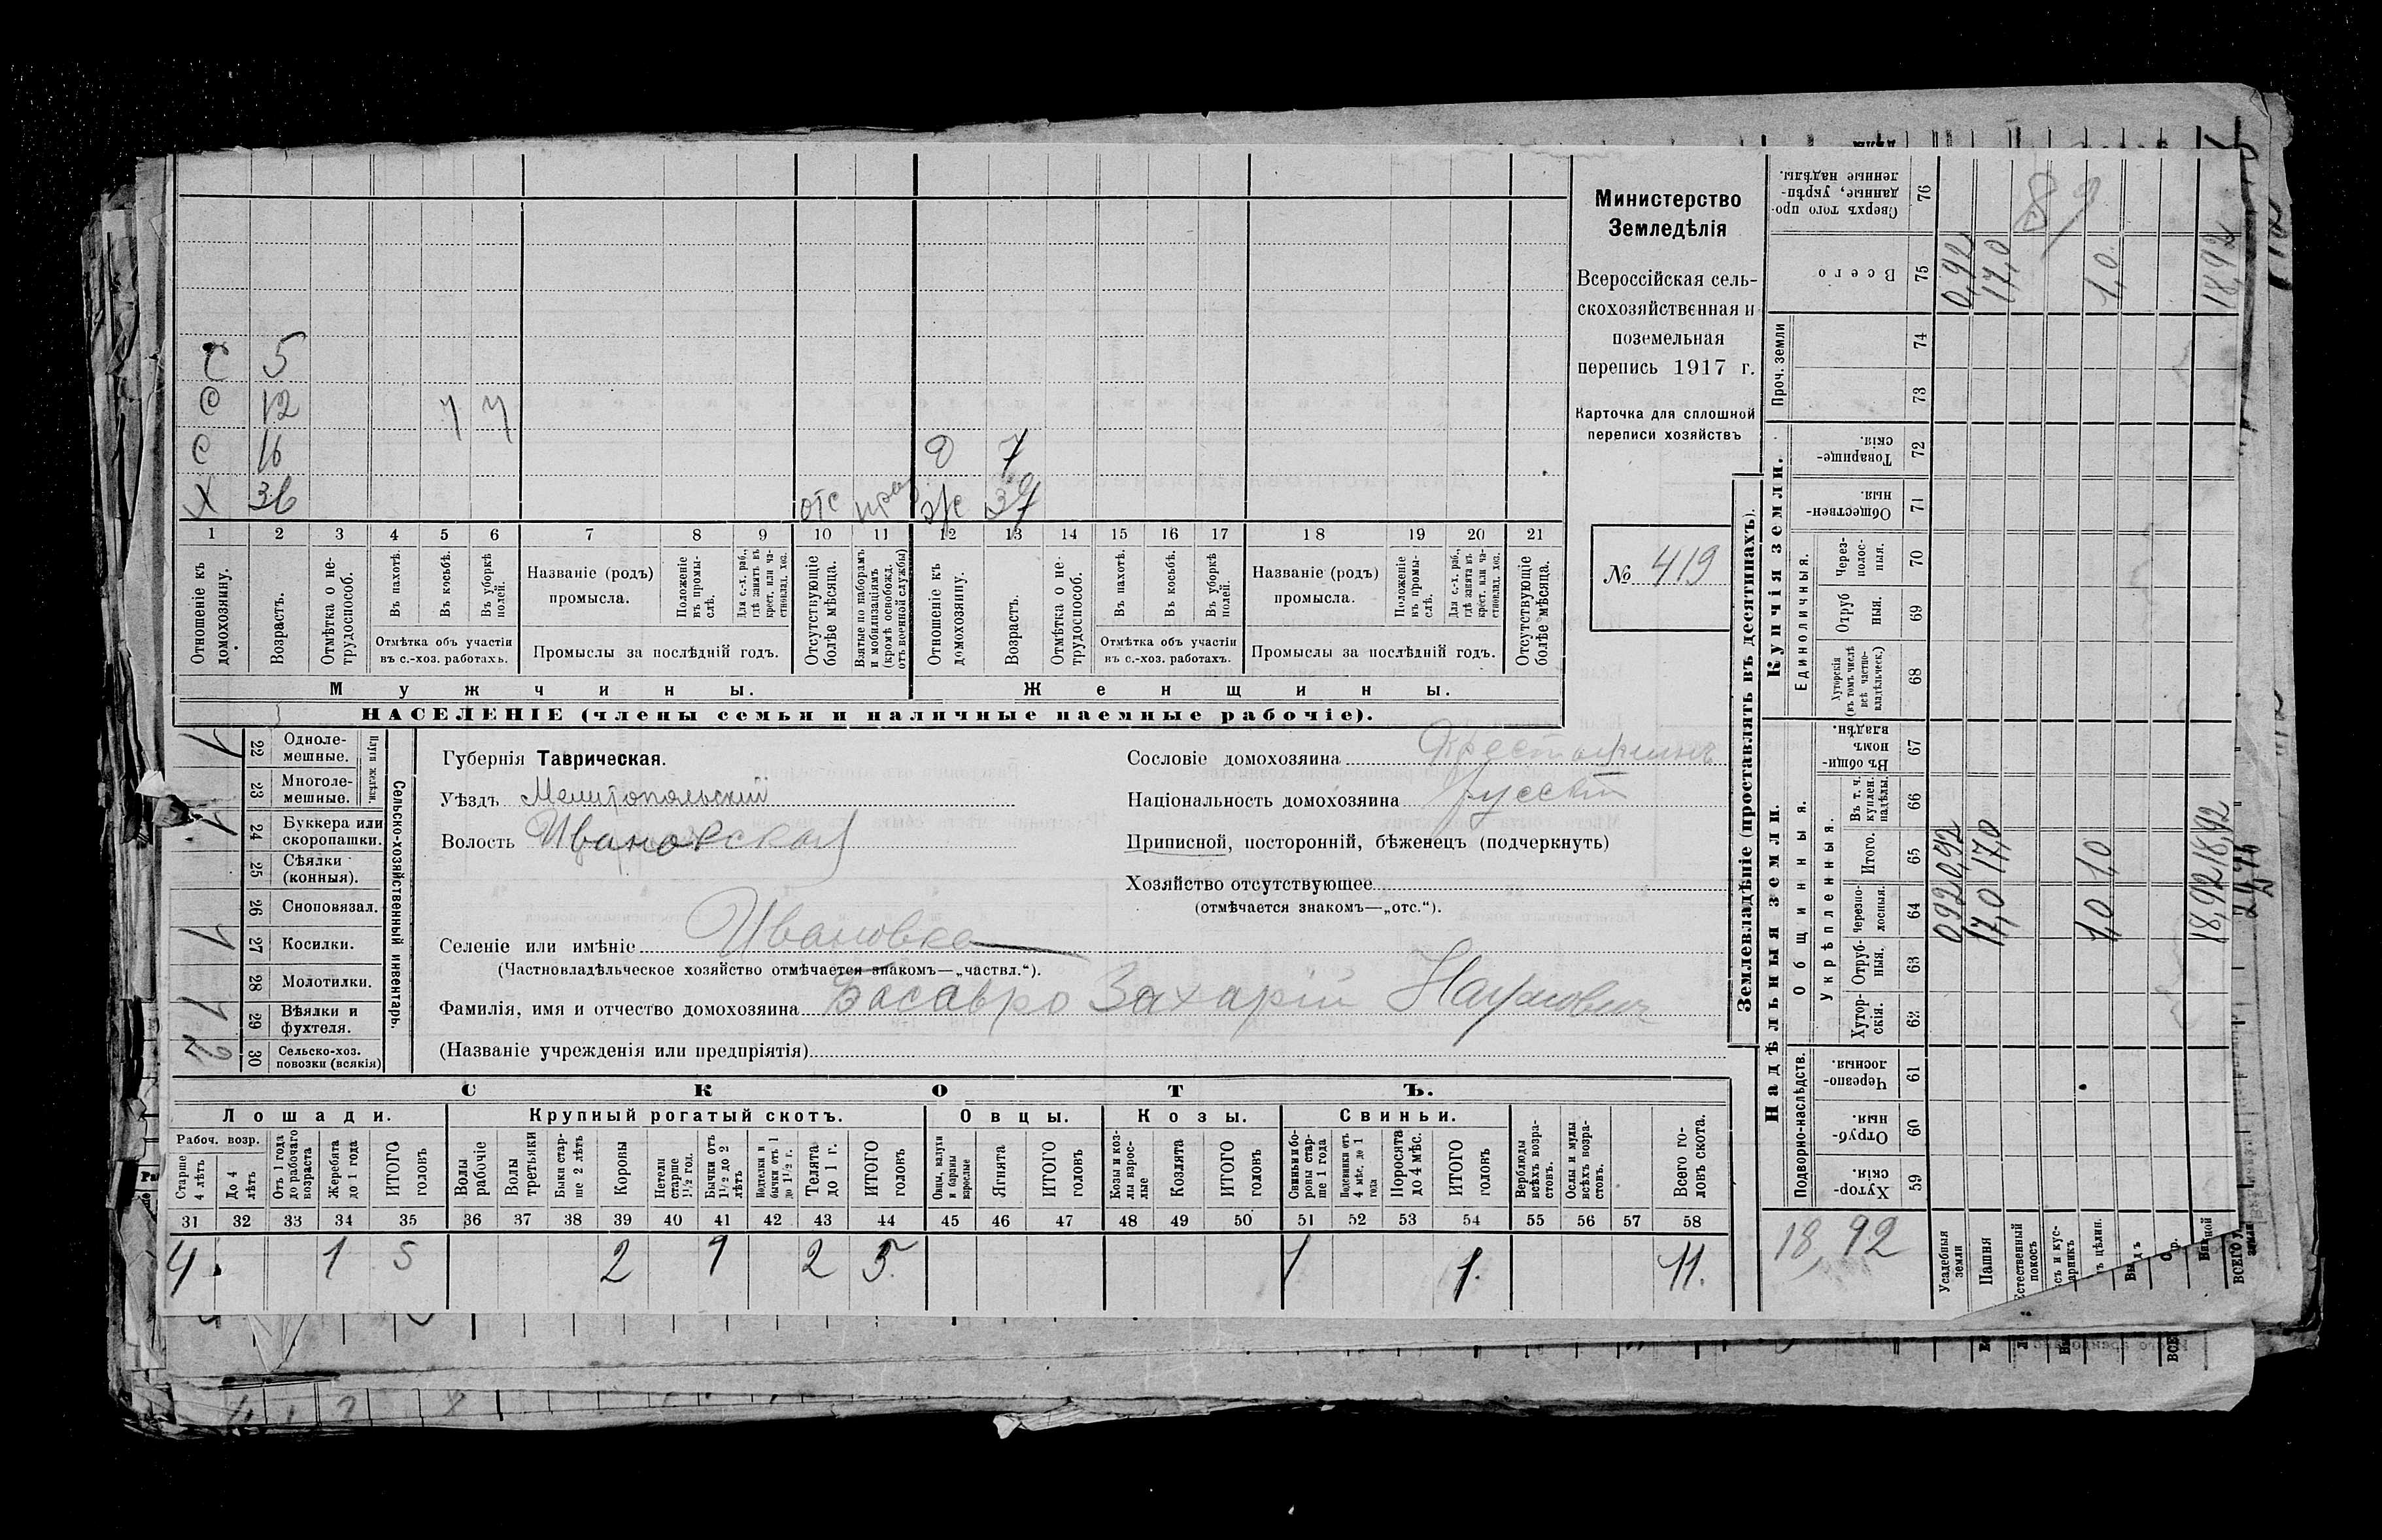 С 5
С 12
С 16 д 7
Х 36 отс
1 2 3 4 5 6 7 8 9 10 11 12 13 14 15 16 17 18 19 20 21
Отношеніе къ домохозяину.
Возрастъ.
Отмѣтка о не-трудоспособ.
Въ пахотѣ.
Въ косьбѣ.
Въ уборкѣ полей.
Отмѣтка объ участіи
въ с.-хоз. работахъ.
Названіе (родъ)
промысла.
Положеніе въ промы-слѣ.
Для с.-х. раб., гдѣ занятъ въ крест. или ча-стновлад. хоз.
Промыслы за послѣдній годъ.
Отсутствующіе болѣе мѣсяца.
Взятые по наборамъ и мобилизаціямъ (кромѣ освобожд. отъ военной службы)
Отношеніе къ домохозяину.
Возрастъ.
Отмѣтка о не-трудоспособ.
Въ пахотѣ.
Въ косьбѣ.
Въ уборкѣ полей.
Отмѣтка объ участіи
въ с.-хоз. работахъ.
Названіе (родъ)
промысла.
Положеніе въ промы-слѣ.
Для с.-х. раб., гдѣ занята въ крест. или ча-стновлад. хоз.
Промыслы за послѣдній годъ.
Отсутствующіе болѣе мѣсяца.
Мужчины.
Женщины.
НАСЕЛЕНІЕ (члены семьи и наличные наемные рабочіе).
Министерство
Земледѣлія
Всероссійская сель-
скохозяйственная и
поземельная
перепись 1917 г.
Карточка для сплошной
переписи хозяйствъ
№ 419
Сельско-хозяйственный инвентарь.
Плуги желѣзн.
1 22 Одноле-мешные.
23 Многоле-мешные.
1 24 Буккера или скоропашки.
25 Сѣялки (конныя).
26 Сноповязал.
1 27 Косилки.
28 Молотилки.
1 29 Вѣялки и фухтеля.
2 30 Сельско-хоз. повозки (всякія)
Губернія Таврическая.
Уѣздъ Мелитопольскій
Волость Ивановская
Селеніе или имѣніе Ивановка
(Частновладѣльческое хозяйство отмѣчается знакомъ—„частвл.“).
Фамилія, имя и отчество домохозяина Басавро Захарій Наумович
(Названіе учрежденія или предпріятія)
Сословіе домохозяина Крестьянинъ
Національность домохозяина русскій
Приписной, посторонній, бѣженецъ (подчеркнуть)
Хозяйство отсутствующее
(отмѣчается знакомъ—„отс.“).
СКОТЪ.
Лошади. Крупный рогатый скотъ. Овцы. Козы. Свиньи.
Рабоч. возр.
Старше 4 лѣтъ
До 4 лѣтъ
Отъ 1 года до рабочаго возраста
Жеребята до 1 года
ИТОГО головъ
Волы рабочіе
Волы третьяки
Быки стар-ше 2 лѣтъ
Коровы
Нетели старше 1½ год.
Бычки отъ 1½ до 2 лѣтъ
Подтелки и бычки отъ 1 до 1½ г.
Телята до 1 г.
ИТОГО головъ
Овцы, валухи и бараны взрослые
Ягнята
ИТОГО головъ
Козы и коз-лы взрос-лые
Козлята
ИТОГО головъ
Свиньи и бо-ровы стар-ше 1 года
Подсвинки отъ 4 мѣс. до 1 года
Поросята до 4 мѣс.
ИТОГО головъ
Верблюды всѣхъ возра-стовъ.
Ослы и мулы всѣхъ возра-стовъ.
Всего го-ловъ скота.
31 32 33 34 35 36 37 38 39 40 41 42 43 44 45 46 47 48 49 50 51 52 53 54 55 56 57 58
4 1 5 2 1 2 5 1 1. 11.
Землевладѣніе (проставлять въ десятинахъ).
Надѣльныя земли.
Купчія земли.
Проч. земли
Подворно-наслѣдств.
Общинныя.
Укрѣпленныя.
Единоличныя.
Сверхъ того про-данные, укрѣп-ленные надѣлы. 76
Всего 75 0,92 17,0 1,0 18,92
74
73
Товарище-скія. 72
Обществен-ныя. 71
Через-полос-ныя. 70
Отруб ныя. 69
Хуторскія (въ томъ числѣ всѣ частно-владѣльческ.) 68
Въ общи номъ владѣн. 67
Въ т. ч. куплен. надѣлы. 66
Итого. 65 0,92 17,0 1,0 18,92
Черезпо-лосныя. 64 0,92 17,0 1,0 18,92
Отруб-ныя. 63
Хутор-скія. 62
Черезпо-лосныя. 61
Отруб-ныя. 60
Хутор-скія. 59
18,92
Усадебныя земли
Пашня
Естественный покосъ